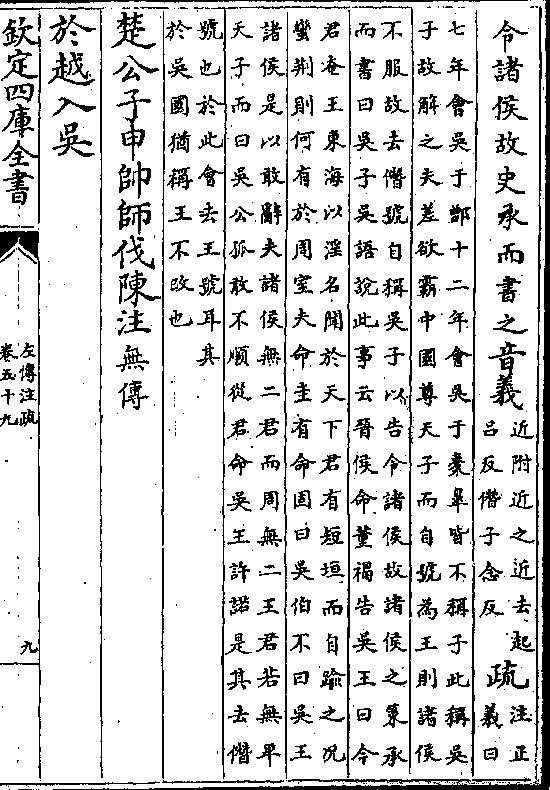 令諸侯故史承而書之音義近附近之近去起
呂反僭子念反疏注正
義曰
七年會吳于鄫十二年會吳于橐皐皆不稱子此稱吳
子故解之夫差欲霸中國尊天子而自號為王則諸侯
不服故去僭號自稱吳子以告令諸侯故諸侯之策承
而書曰吳子吳語說此事云晉侯命董褐告吳王曰今
君奄王東海以淫名聞於天下君有短垣而自踰之况
蠻荆則何有於周室夫命圭有命固曰吳伯不曰吳王
諸侯是以敢辭夫諸侯無二君而周無二王君若無卑
天子而曰吳公孤敢不順從君命吳王許諾是其去僭
號也於此會去王號耳其
於吳國猶稱王不改也
楚公子申帥師伐陳注無傳
於越入吳
欽定四庫全書
左傳注疏
卷五十九
九